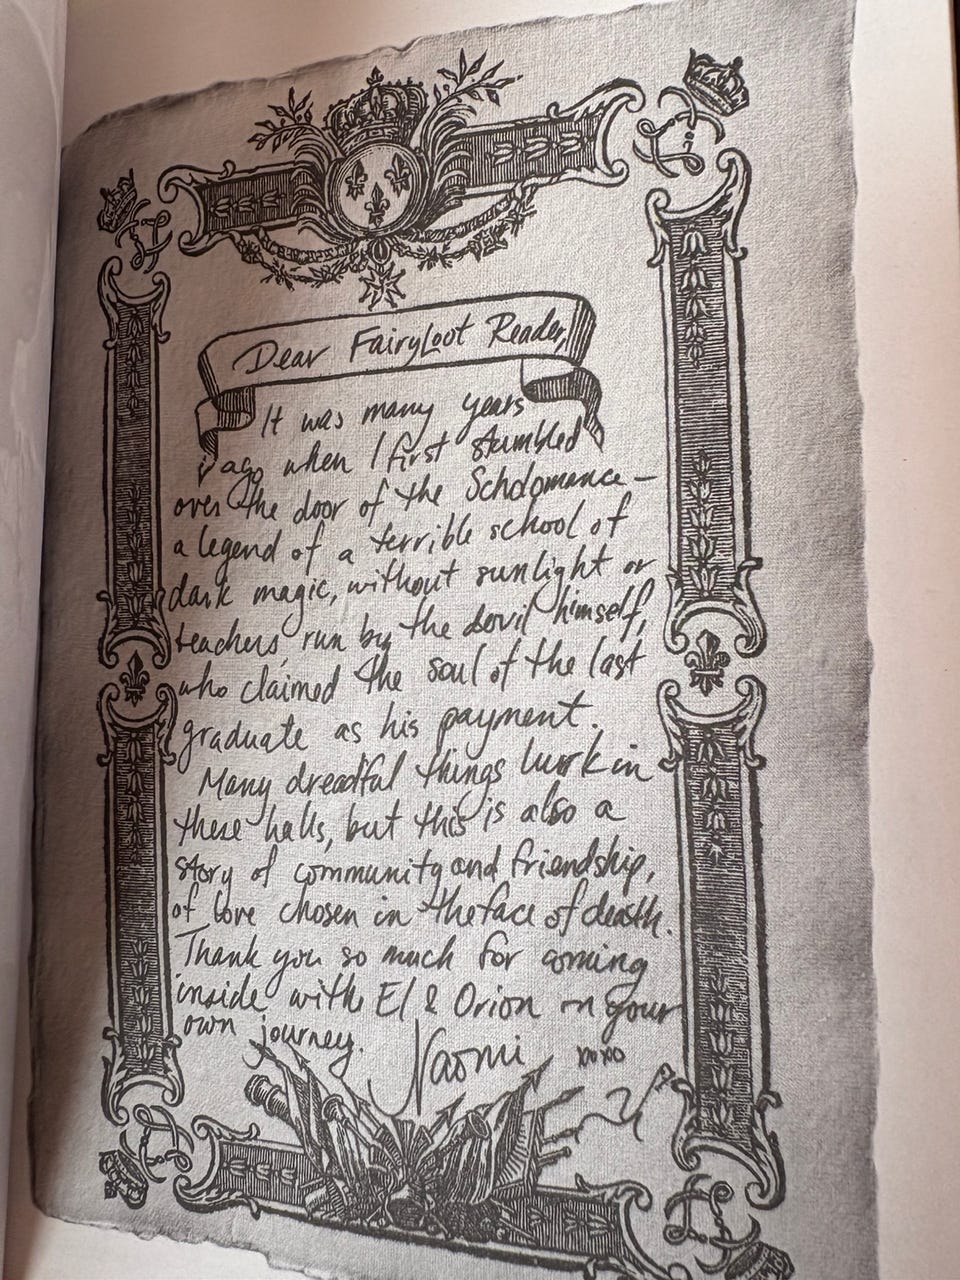 Dear FairyLoot Reader,
It was many years
ago when I first stumbled
over the door of the Scholomance —
a legend of a terrible school of
dark magic, without sunlight or
teachers, run by the devil himself,
who claimed the soul of the last
graduate as his payment.
Many dreadful things lurk in
these halls, but this is also a
story of community and friendship,
of love chosen in the face of death.
Thank you so much for coming
inside with El & Orion on your
own journey.
Naomi xoxo